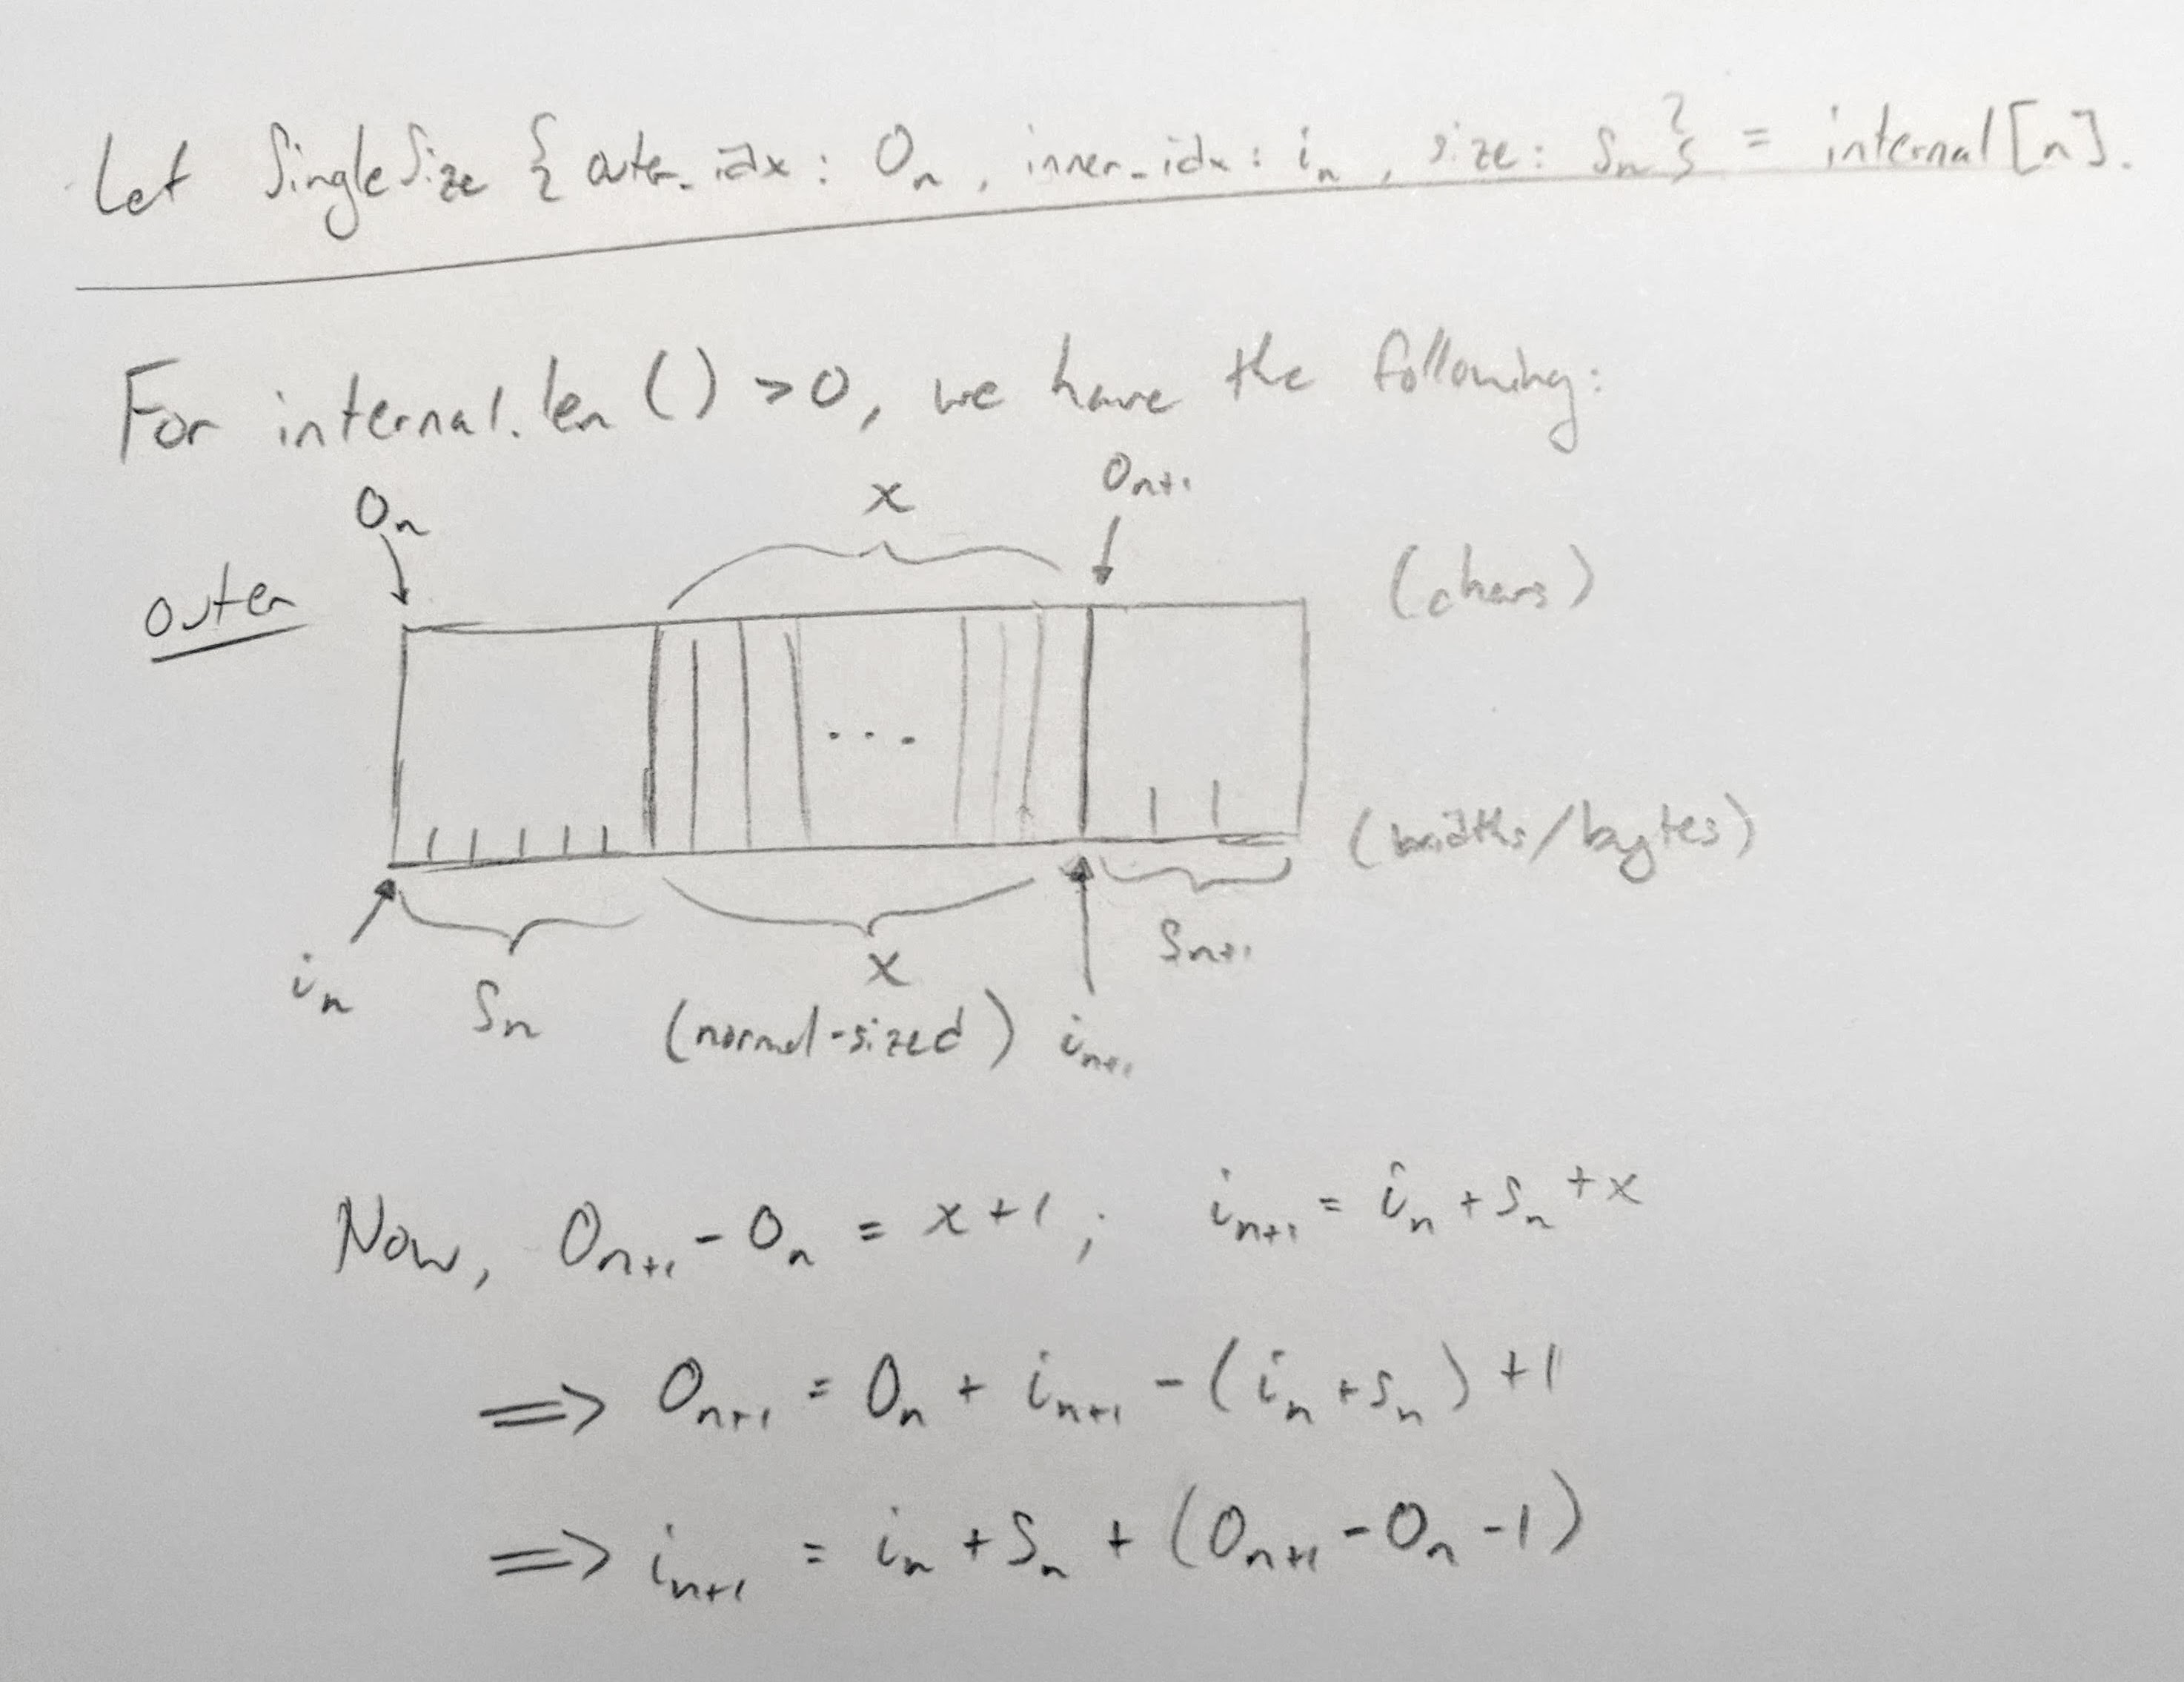 Let SingleSize { outer_idx : Oₙ , inner_idx : iₙ , size : Sₙ } = internal[n].
For internal.len () > 0, we have the following:
Oₙ x Oₙ₊₁
outer (chars)
...
(widths/bytes)
iₙ Sₙ x Sₙ₊₁
(normal-sized) iₙ₊₁
Now, Oₙ₊₁ - Oₙ = x + 1 ; iₙ₊₁ = iₙ + Sₙ + x
⇒ Oₙ₊₁ = Oₙ + iₙ₊₁ - (iₙ + Sₙ) + 1
⇒ iₙ₊₁ = iₙ + Sₙ + (Oₙ₊₁ - Oₙ - 1)